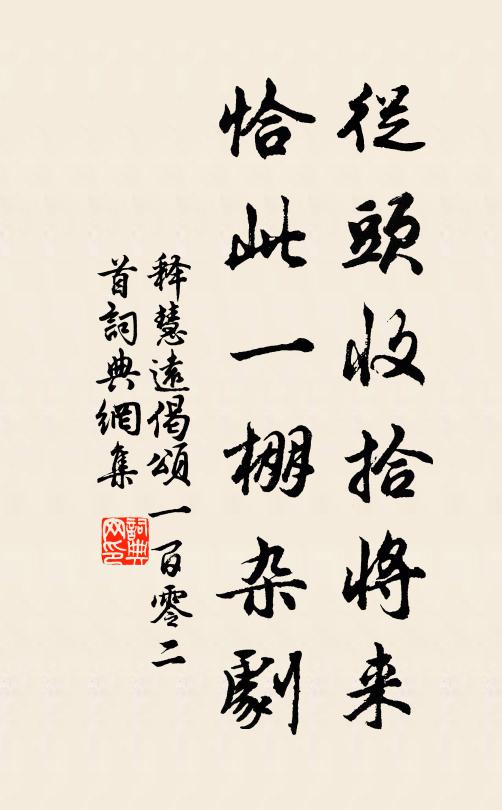 從頭收拾將来
恰此一棚杂劇
释慧遠偈頌一百零二
首詞典網集
詞典网印